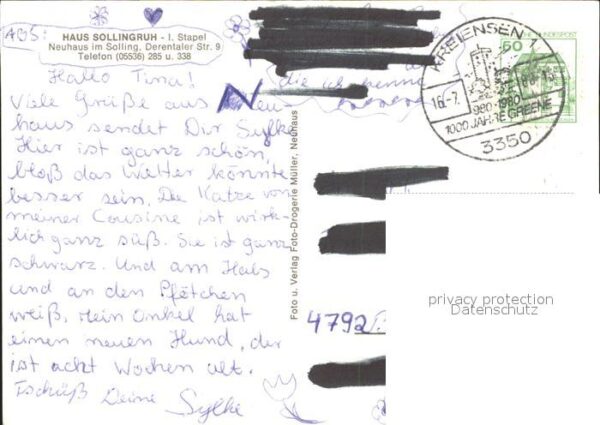 ABS:
HAUS SOLLINGRUH - I. Stapel
Neuhaus im Solling, Derentaler Str. 9
Telefon (05536) 285 u. 338
Hallo Tina!
Viele Grüße aus Neu-
haus sendet Dir Sylke
Hier ist ganz schön,
bloß das Wetter könnte
besser sein. Die Katze von
meiner Cousine ist wirk-
lich ganz süß. Sie ist ganz
schwarz. Und am Hals
und an den Pfötchen
weiß. Mein Onkel hat
einen neuen Hund, der
ist acht Wochen alt.
Tschüß Deine
Sylke
Foto u. Verlag Foto-Drogerie Müller, Neuhaus
KREIENSEN 1
16.-7.
980-1980
1000 JAHRE GREENE
3350
60
BUNDESPOST
4792
privacy protection
Datenschutz